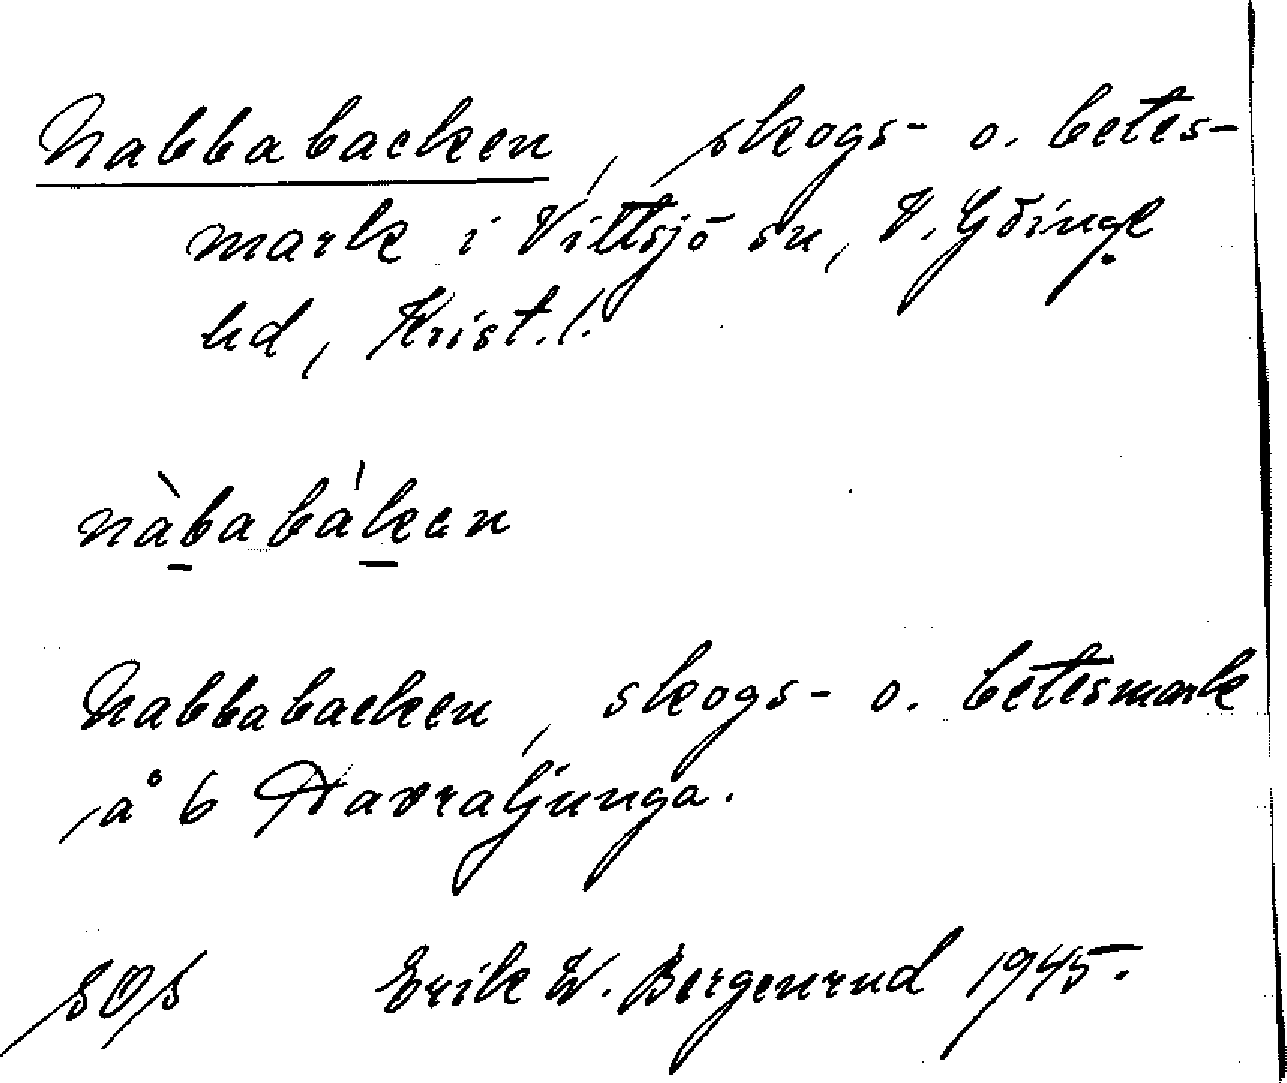 Nabbabacken, skogs- o. betes-
mark i Vittsjö sn, V. Göinge
hd, Krist. l.
nàbabáken
Nabbabacken, skogs- o. betesmark
å 6 Havraljunga.
SOS Erik W. Bergenrud 1945.